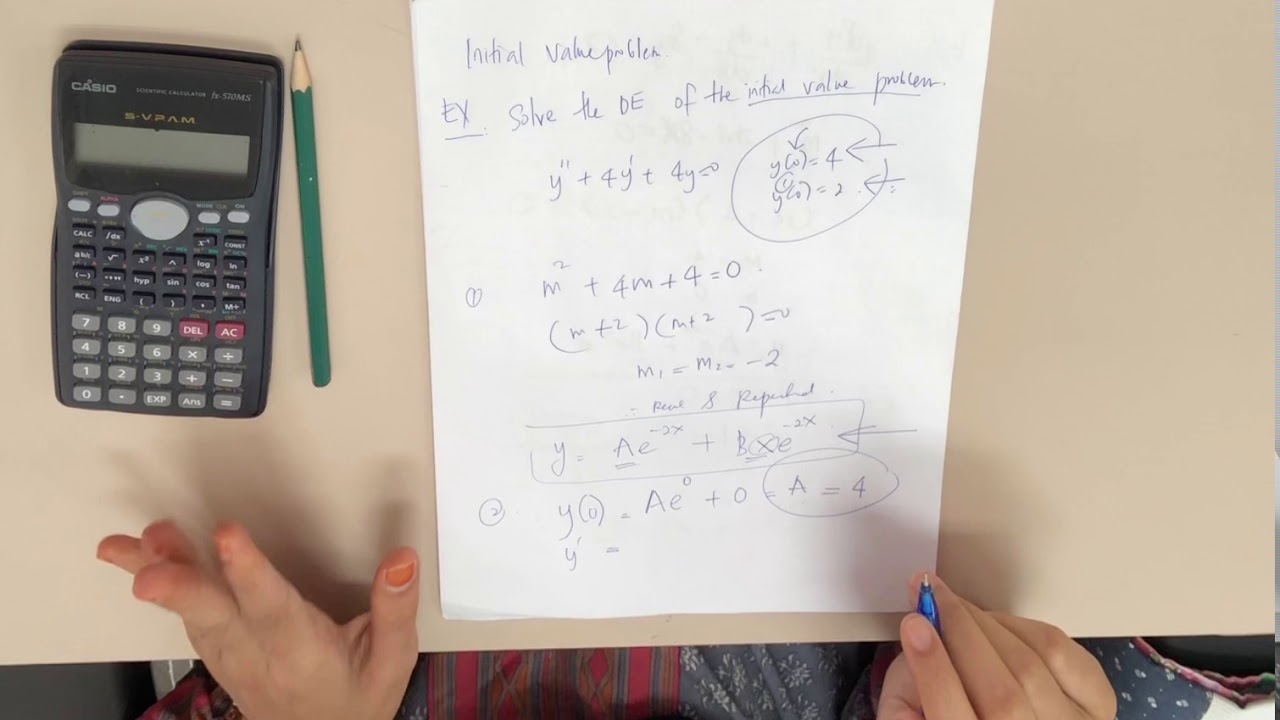 Initial value problem.
EX. Solve the DE of the initial value problem.
y'' + 4y' + 4y = 0
y(0) = 4
y'(0) = 2
① m² + 4m + 4 = 0
(m + 2)(m + 2) = 0
m₁ = m₂ = -2
∴ Real & Repeated.
y = Ae^{-2x} + Bxe^{-2x}
② y(0) = Ae⁰ + 0 = A = 4
y' =
CASIO
SCIENTIFIC CALCULATOR fx-570MS
S-V.P.A.M.
SHIFT ALPHA MODE CLR ON
CALC ∫dx x⁻¹ CONST
ab/c √ x² ^ log ln
(−) °'" hyp sin cos tan
RCL ENG ( ) , M+
7 8 9 DEL AC
4 5 6 × ÷
1 2 3 + −
0 • EXP Ans =